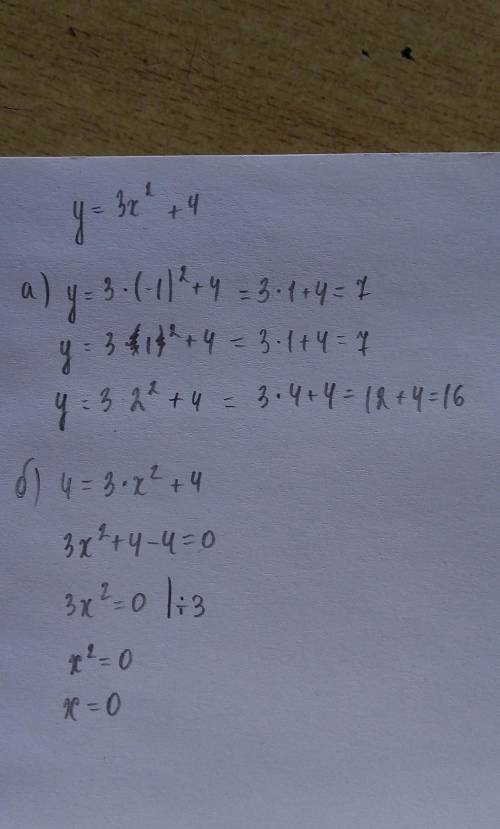 y = 3x² + 4
а) y = 3·(-1)² + 4 = 3·1+4 = 7
y = 3 (1)² + 4 = 3·1+4 = 7
y = 3 2² + 4 = 3·4+4 = 12+4 = 16
б) 4 = 3·x² + 4
3x² + 4 - 4 = 0
3x² = 0 |÷3
x² = 0
x = 0